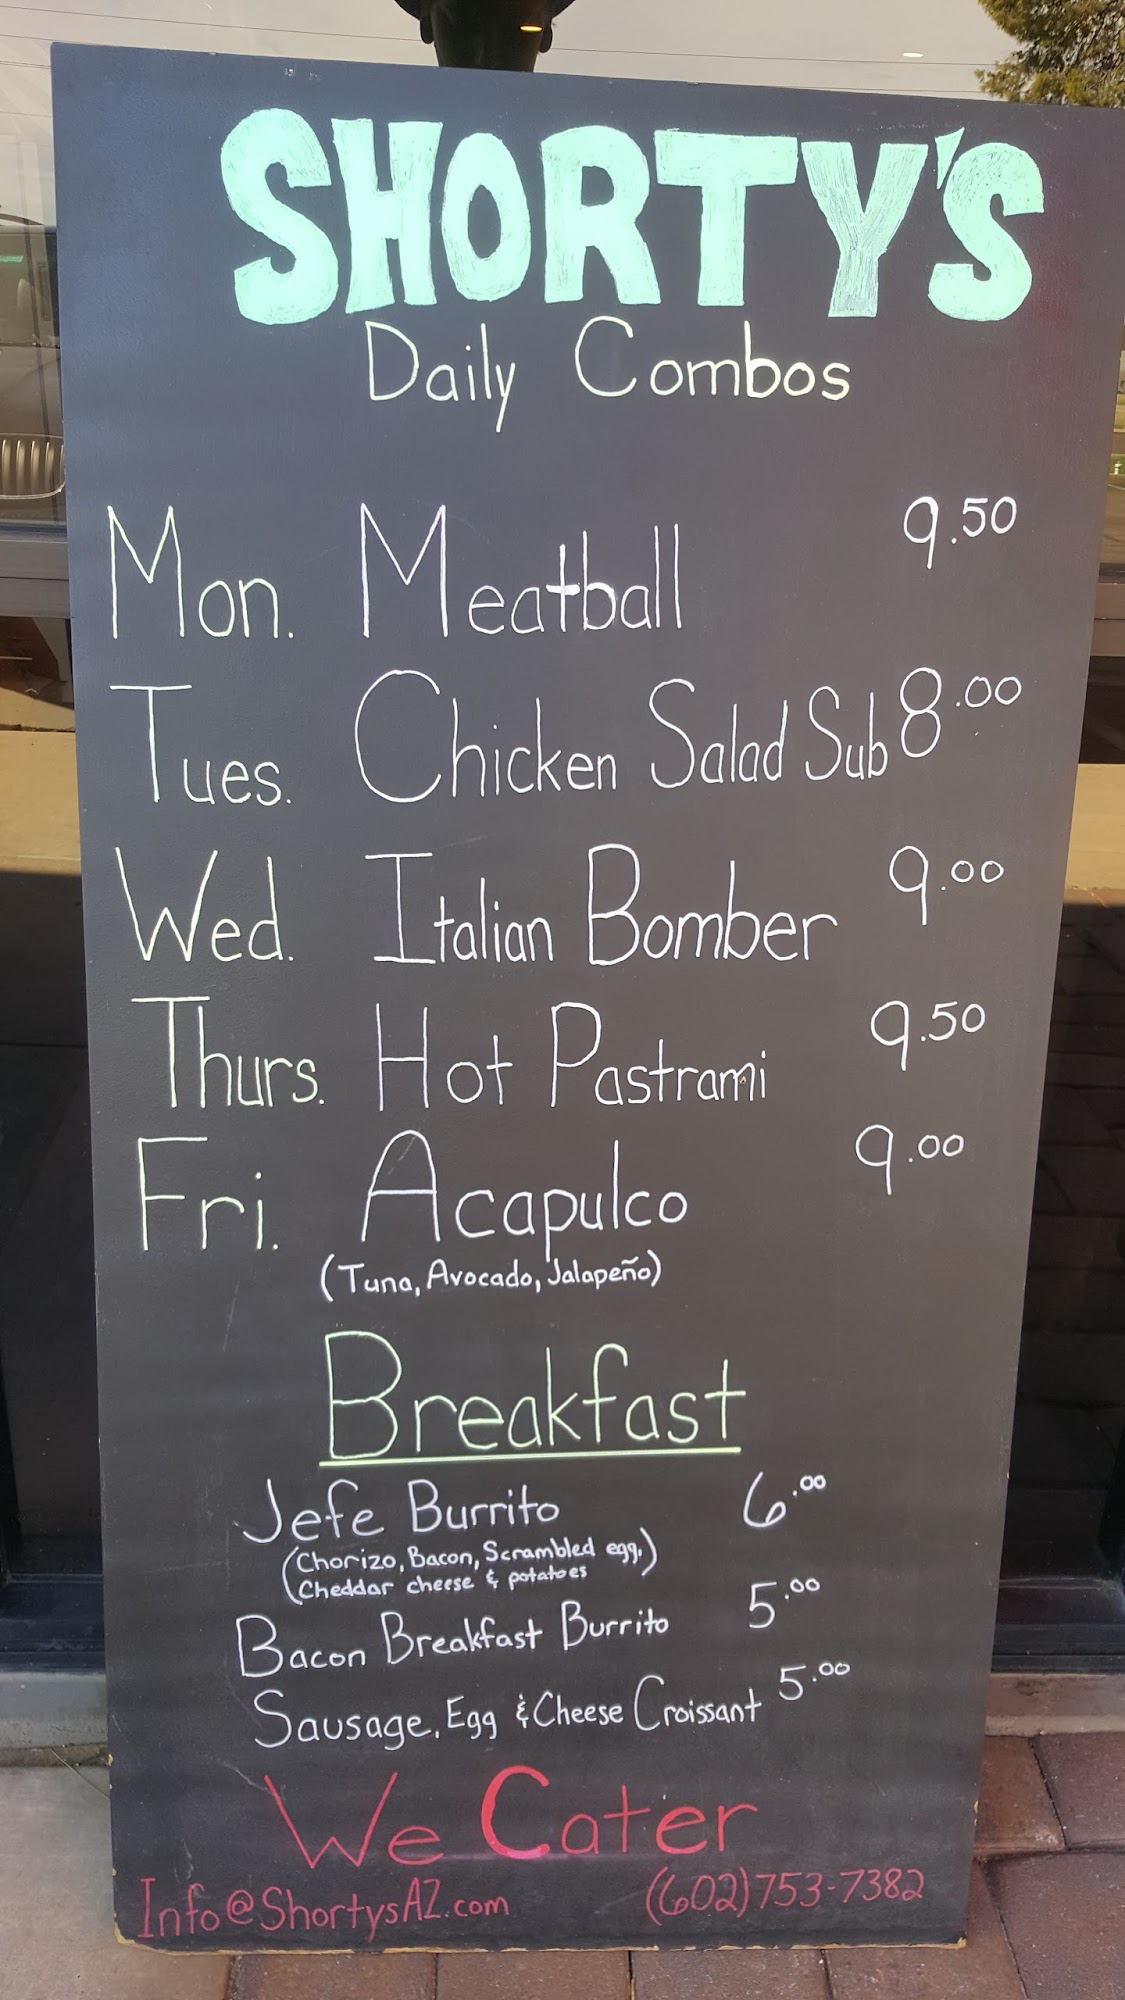 SHORTY'S
Daily Combos
Mon. Meatball 9.50
Tues. Chicken Salad Sub 8.00
Wed. Italian Bomber 9.00
Thurs. Hot Pastrami 9.50
Fri. Acapulco 9.00
(Tuna, Avocado, Jalapeño)
Breakfast
Jefe Burrito 6.00
(Chorizo, Bacon, Scrambled egg,
Cheddar cheese & potatoes)
Bacon Breakfast Burrito 5.00
Sausage, Egg & Cheese Croissant 5.00
We Cater
Info@ShortysAZ.com (602)753-7382